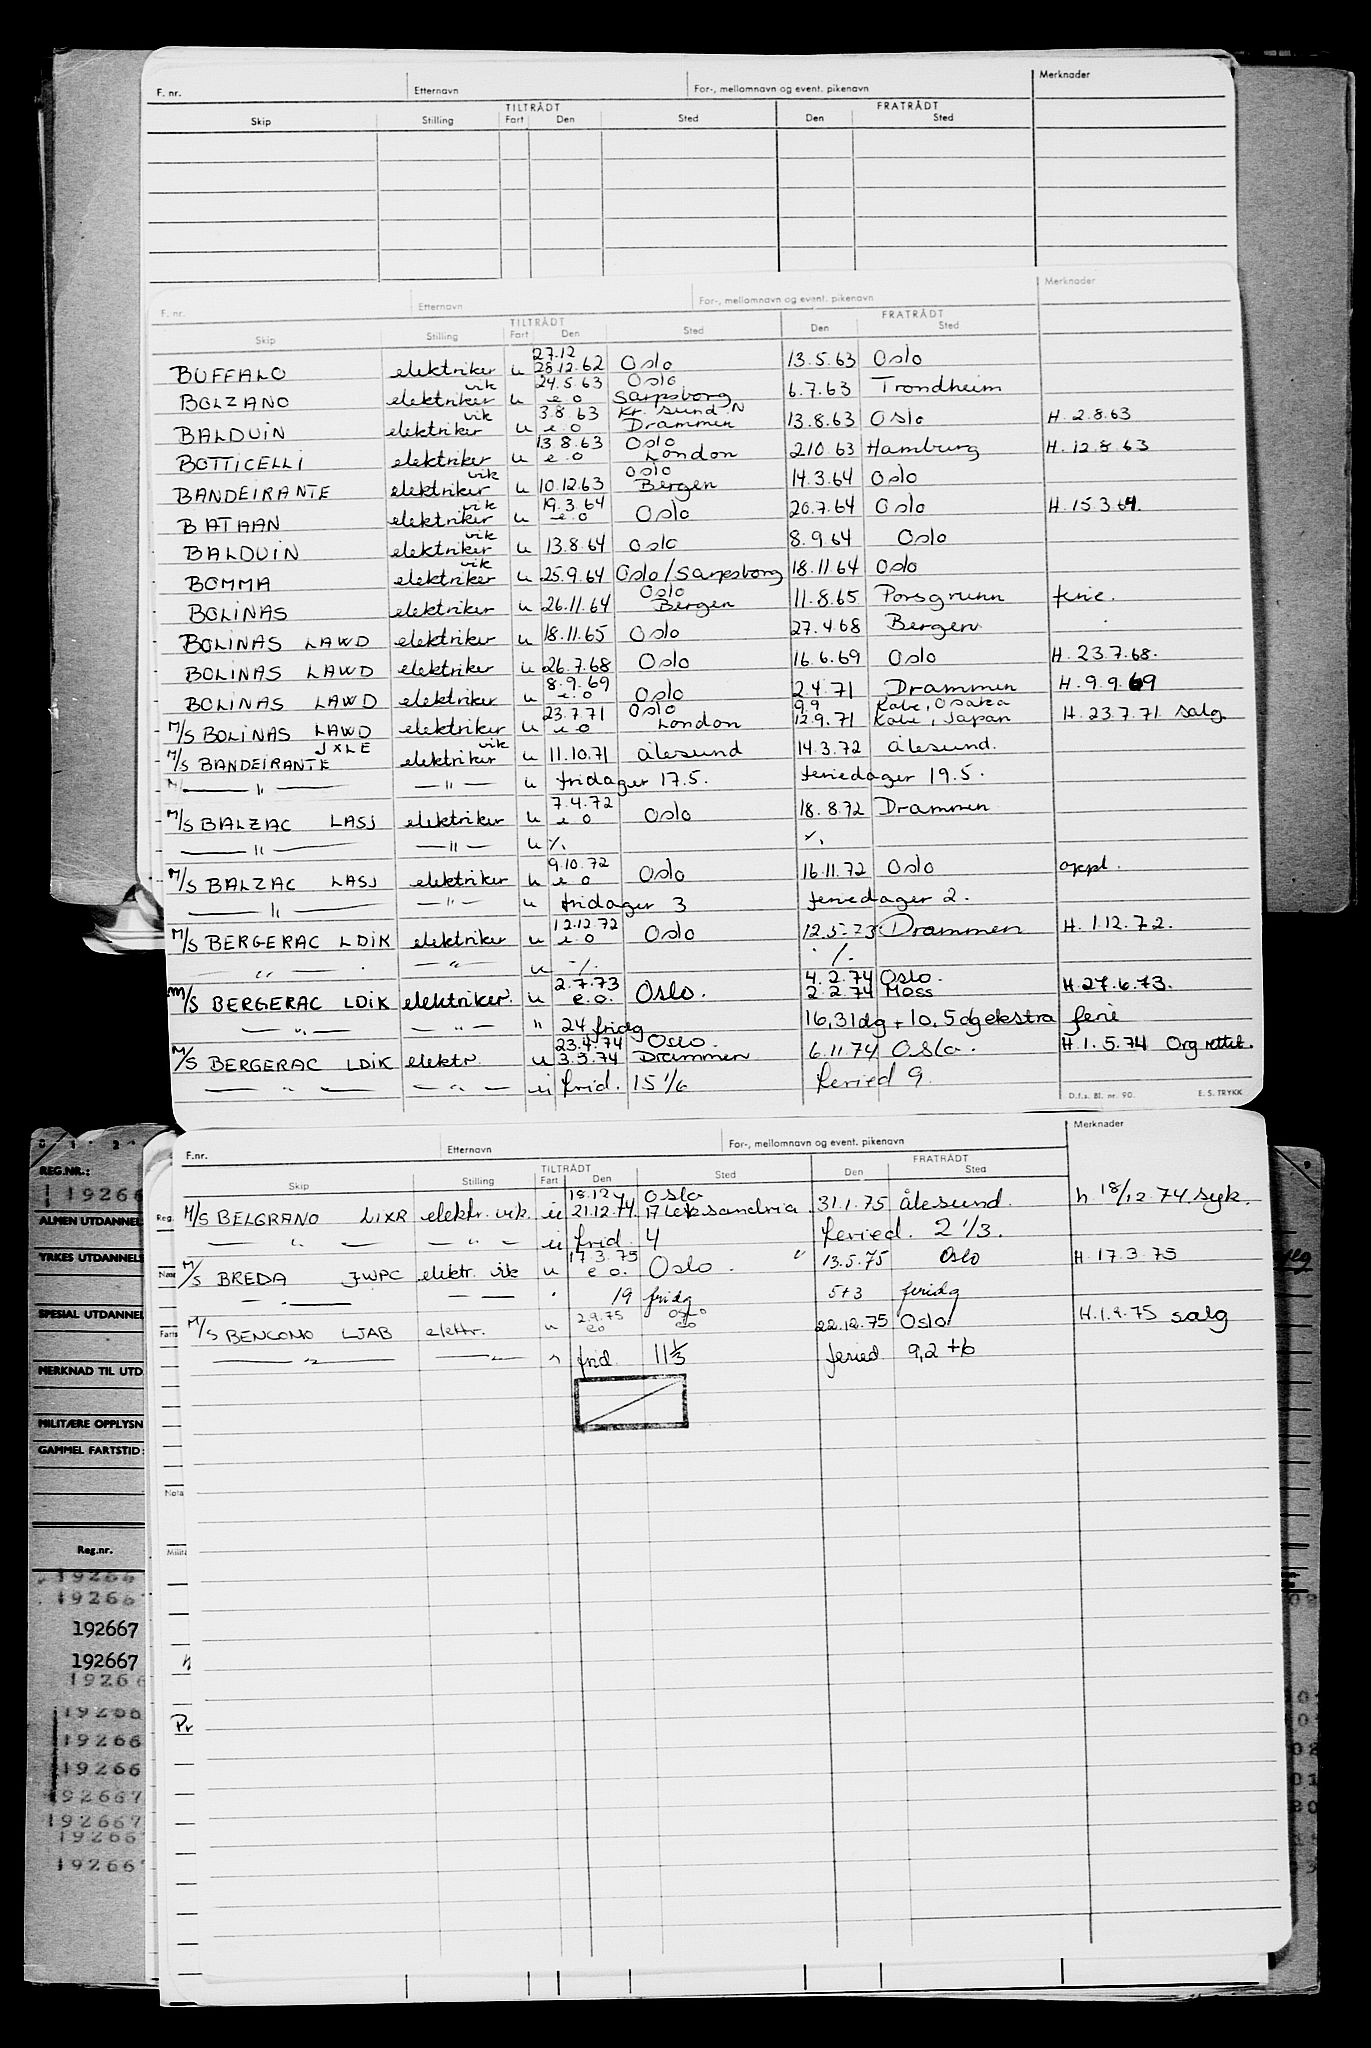 F. nr. Etternavn For-, mellomnavn og event. pikenavn Merknader
TILTRÅDT FRATRÅDT
Skip Stilling Fart Den Sted Den Sted
F. nr. Etternavn For-, mellomnavn og event. pikenavn Merknader
TILTRÅDT FRATRÅDT
Skip Stilling Fart Den Sted Den Sted
27.12
BUFFALO elektriker u 28.12.62 Oslo 13.5.63 Oslo
vik 24.5.63 Oslo
BOLZANO elektriker u e.o Sarpsborg 6.7.63 Trondheim
vik 3.8.63 Kr. sund N
BALDUIN elektriker u e.o Drammen 13.8.63 Oslo H. 2.8.63
13.8.63 Oslo
BOTTICELLI elektriker u e.o London 2.10.63 Hamburg H. 12.8.63
vik Oslo
BANDEIRANTE elektriker u 10.12.63 Bergen 14.3.64 Oslo
vik 19.3.64
BATAAN elektriker u e.o Oslo 20.7.64 Oslo H. 15.3.64.
vik
BALDUIN elektriker u 13.8.64 Oslo 8.9.64 Oslo
vik
BOMMA elektriker u 25.9.64 Oslo/Sarpsborg 18.11.64 Oslo
Oslo
BOLINAS elektriker u 26.11.64 Bergen 11.8.65 Porsgrunn ferie.
BOLINAS LAWD elektriker u 18.11.65 Oslo 27.4.68 Bergen
BOLINAS LAWD elektriker u 26.7.68 Oslo 16.6.69 Oslo H. 23.7.68.
8.9.69
BOLINAS LAWD elektriker u e.o Oslo 2.4.71 Drammen H. 9.9.69
23.7.71 Oslo 9.9 Kobe, Osaka
M/S BOLINAS LAWD elektriker u e.o London 12.9.71 Kobe, Japan H. 23.7.71 salg
JXLE vik
M/S BANDEIRANTE elektriker u 11.10.71 Ålesund 14.3.72 Ålesund.
M/ — " — — " — u fridager 17.5. feriedager 19.5.
7.4.72
M/S BALZAC LASJ elektriker u e.o Oslo 18.8.72 Drammen
— " — — " — u ./. ./.
9.10.72
M/S BALZAC LASJ elektriker u e.o Oslo 16.11.72 Oslo oppl.
— " — — " — u fridager 3 feriedager 2.
12.12.72
M/S BERGERAC LDIK elektriker u e.o Oslo 12.5.73 Drammen H. 1.12.72.
— " — — " — u ./. ./.
2.7.73 4.2.74 Oslo.
M/S BERGERAC LDIK elektriker. u e.o. Oslo. 2.2.74 Moss H. 27.6.73.
— " — — " — " 24 fridg 16,31dg + 10,5dg ekstra ferie
23.4.74 Oslo.
M/S BERGERAC LDIK elektr. u 3.5.74 Drammen 6.11.74 Oslo. H. 1.5.74 Org rettet.
— " — — " — u frid. 15 1/6 feried 9.
D.f.s. Bl. nr. 90. E. S. TRYKK
F.nr. Etternavn For-, mellomnavn og event. pikenavn Merknader
TILTRÅDT FRATRÅDT
Skip Stilling Fart Den Sted Den Sted
18.12 Oslo
M/S BELGRANO LIXR elektr. vik. u 21.12.74 31.1.75 Ålesund. h. 18/12.74 syk.
— " — — " — u frid. 4 feried. 2 1/3.
17.3.75
M/S BREDA JWPC elektr. vik u e.o. Oslo. " 13.5.75 Oslo H. 17.3.75
— " — — — " 19 fridg 5+3 feridg
2.9.75 Oslo
M/S BENCOMO LJAB elektr. u eo eo 22.12.75 Oslo H.1.9.75 salg
— " — — " — " frid. 11 1/3 feried 9,2 +6
0 1 2
REG.NR.:
19266
ALMEN UTDANNEL
YRKES UTDANNELS
SPESIAL UTDANNEL
MERKNAD TIL UTD
MILITÆRE OPPLYSN
GAMMEL FARTSTID:
Reg.
Farts
Nota
Milita
Pr
Reg.nr.
19266
19266
192667
192667
19266
19266
19266
19266
192667
192667
19266
192667